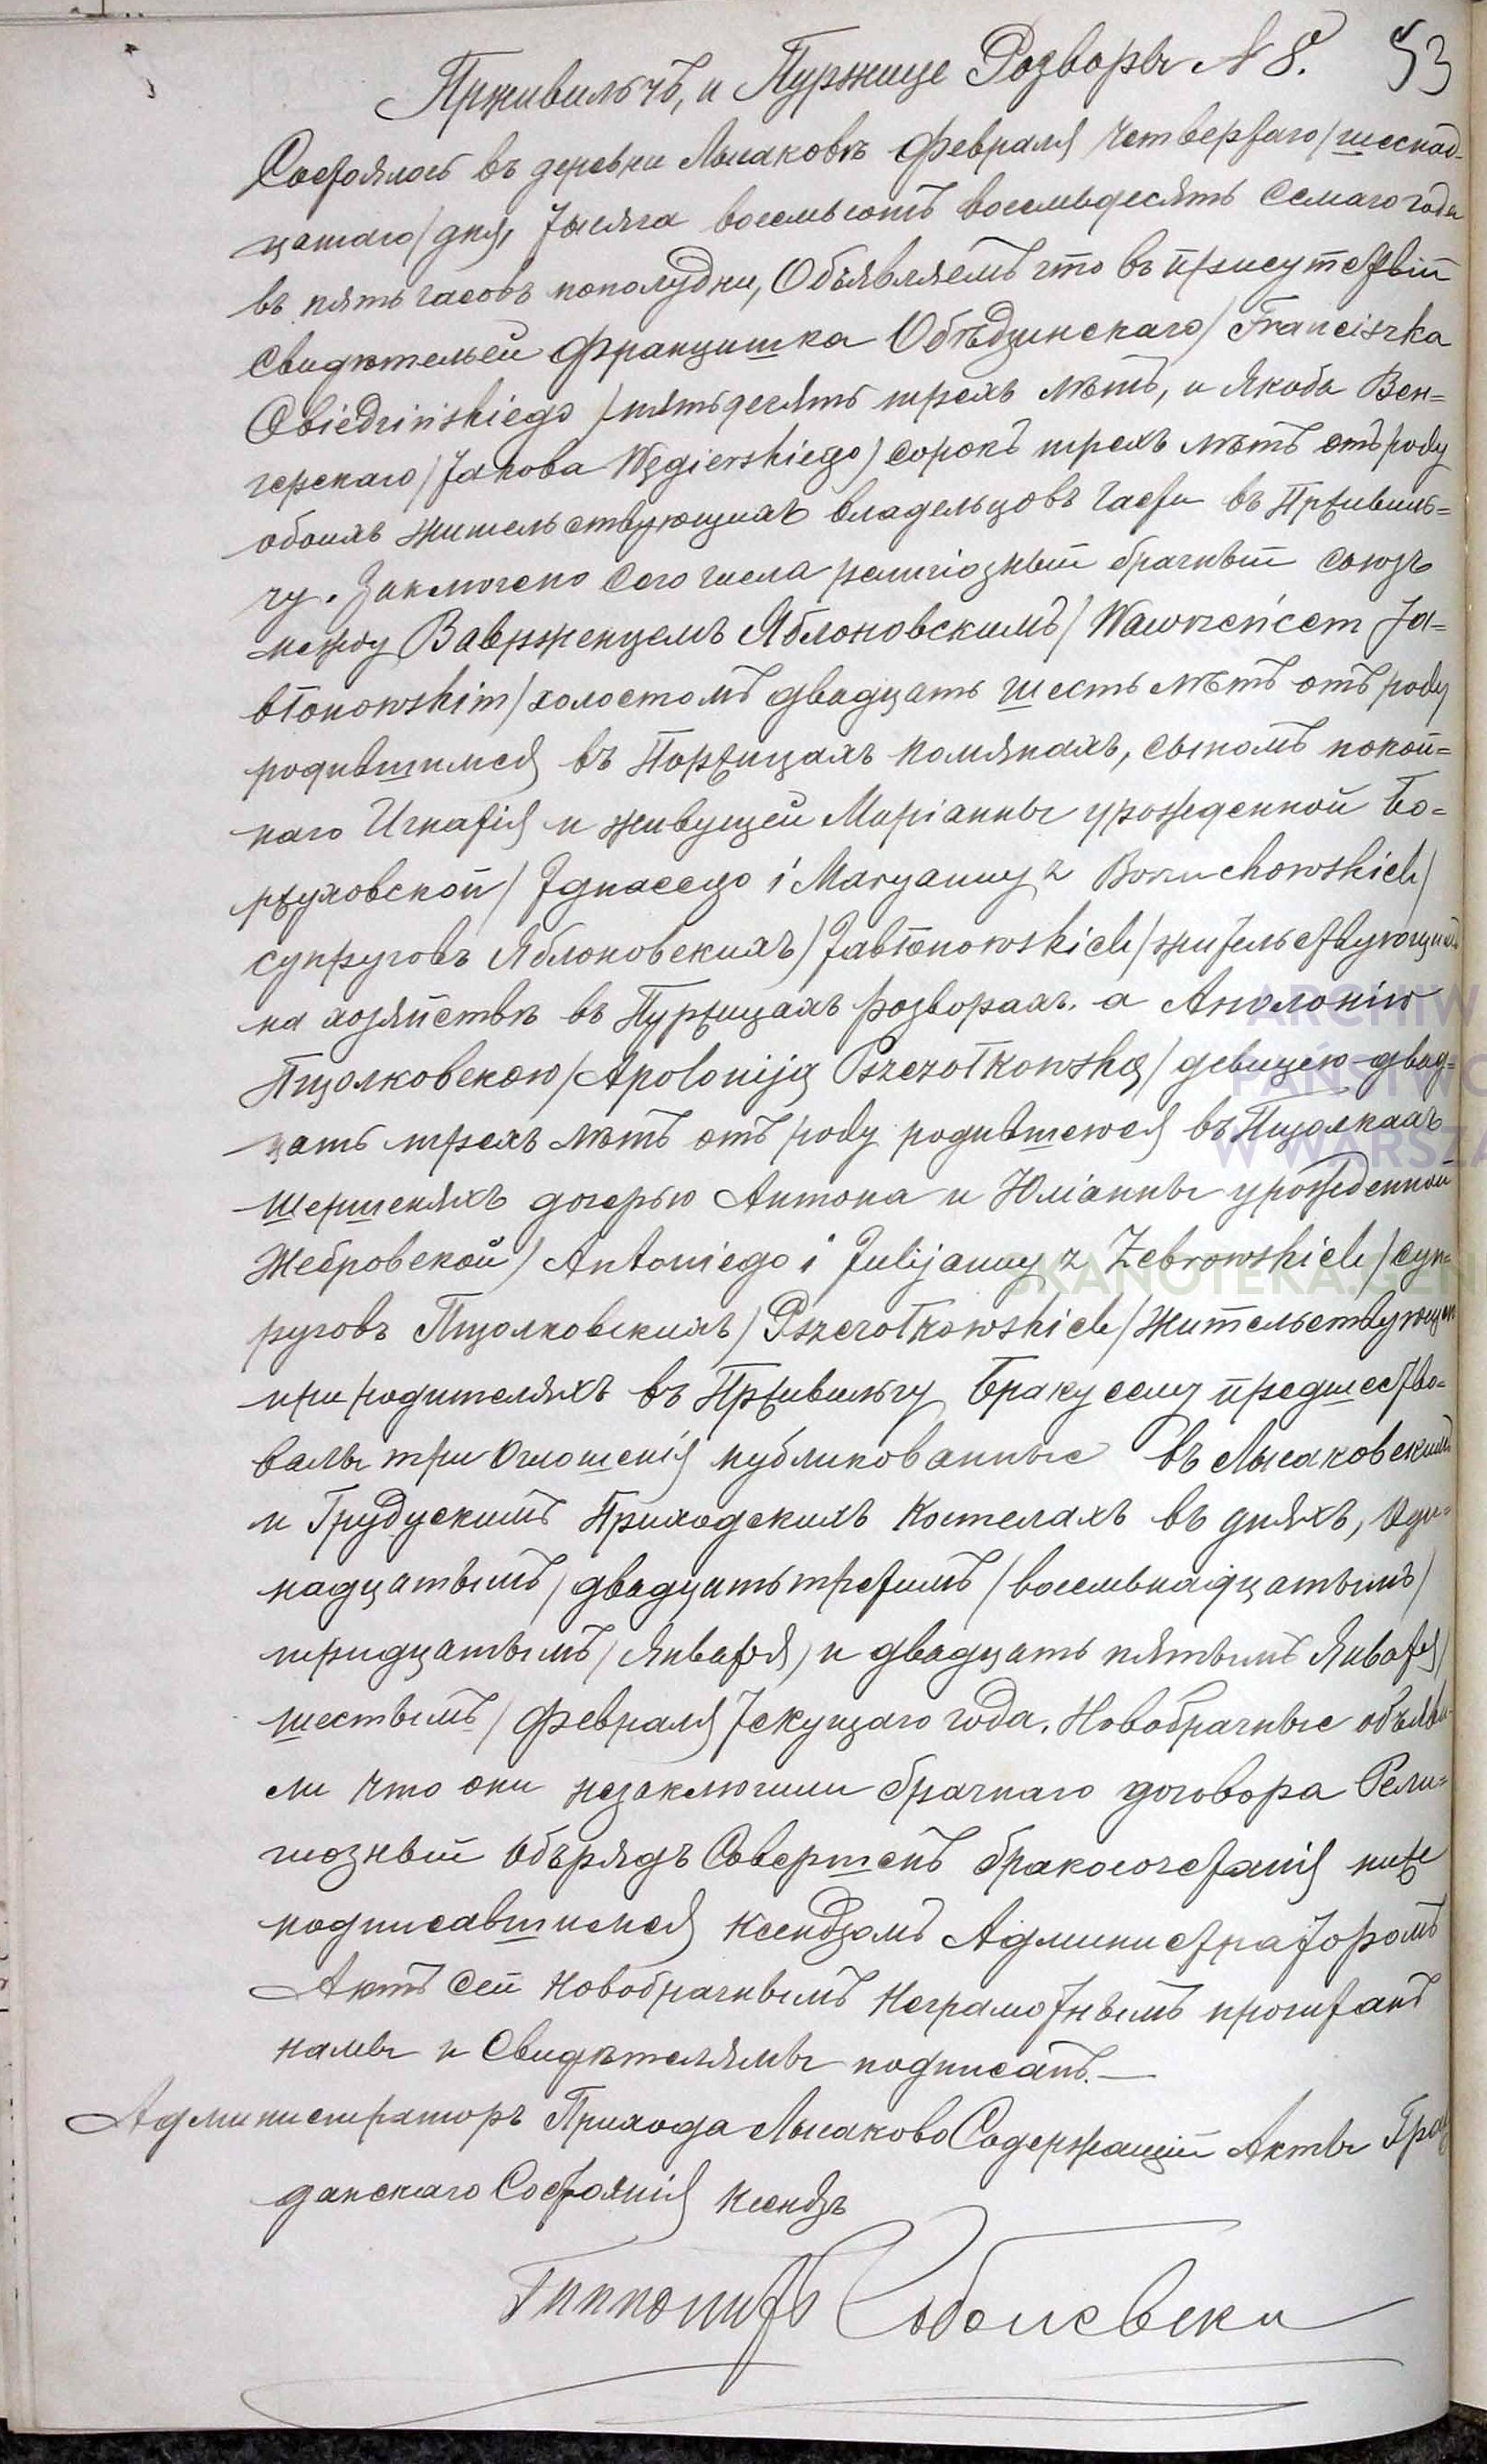 Прживильчъ, и Пуржице Розворы N 8. 53
Состоялось въ деревни Лысаковѣ Февраля четвертаго /шеснад-
цатаго/ дня, тысяча восемьсотъ восемьдесятъ седмаго года
въ пять часовъ пополудни, Объявляемъ что въ присутствій
свидѣтелей Францишка Обѣдзинскаго / Franciszka
Obiedzińskiego / пятьдесятъ трехъ лѣтъ, и Якоба Вен=
герскаго / Jakoba Węgierskiego / сорокъ трехъ лѣтъ отъ роду
обоихъ жительствующихъ владельцовъ части въ Прживиль=
чу. Заключено сего числа религіозный брачный союзъ
между Ваврженцемъ Яблоновскимъ / Wawrzeńcem Ja=
błonowskim / холостомъ двадцать шесть лѣтъ отъ роду
родившимся въ Поржицахъ Помянахъ, сыномъ покой=
наго Игнатія и живущей Маріанны урожденной Бо=
ржуховской / Ignacego i Maryanny z Borzuchowskich /
супруговъ Яблоновскихъ / Jabłonowskich / жительствующихъ
на хозяйствѣ въ Пуржицахъ розворахъ. а Аполонію
Пщолковскою / Apoloniją Pszczołkowską / девицею двад=
цать трехъ лѣтъ отъ роду родившеюся въ Пщолкахъ
Шершеняхъ дочерью Антона и Юліанны урожденной
Жебровской / Antoniego i Julijanny z Żebrowskich / суп=
руговъ Пщолковскихъ / Pszczołkowskich / жительствующ
при родителяхъ въ Прживильчу Браку сему предшество=
валы три Оглошенія публикованные въ Лысаковскимъ
и Грудускимъ Приходскихъ Костелахъ въ дняхъ, Оди=
надцатымъ / двадцать третимъ / восемьнадцатымъ /
тридцатымъ / Января / и двадцать пятымъ Января /
шестымъ / Февраля текущаго года. Новобрачные объяви-
ли что они незаключили брачнаго договора Рели=
гіозный Обърядъ Совершенъ бракосочетанія ниже
подписавшимся Ксендзомъ Администраторомъ
Актъ сей Новобрачнымъ Неграмотнымъ прочитанъ
намы и Свидѣтелямы подписанъ. —
Администраторъ Прихода Лысаково Содержащій Акты Граж
данскаго Состоянія Ксендзъ
Гипполитъ Соболевски
ARCHIW
PAŃSTWO
W WARSZA
SKANOTEKA.GEN